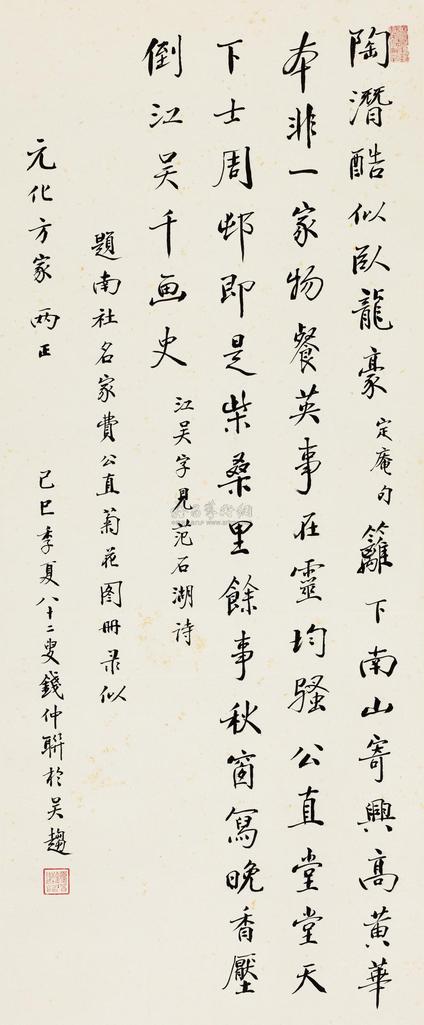 陶潛酷似臥龍豪定庵句籬下南山寄興高黃華
本非一家物餐英事在靈均騷公直堂堂天
下士周邨即是柴桑里餘事秋窗寫晚香壓
倒江吴千画史江吴字見范石湖诗
題南社名家費公直菊花图册录似
元化方家两正
己巳季夏八十二叟錢仲聯於吴趨